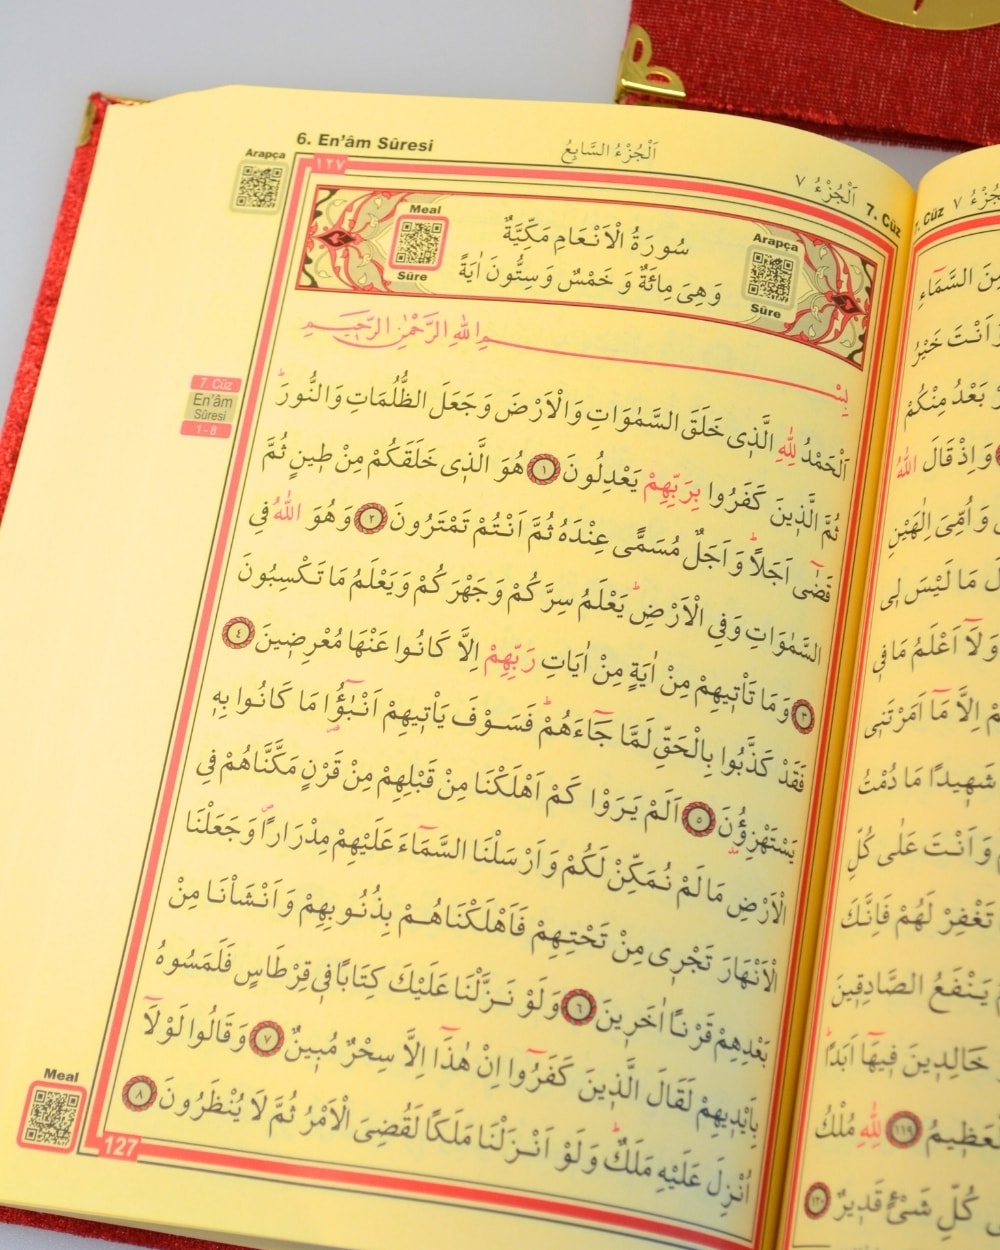 6. En'âm Sûresi
اَلْجُزْءُ السَّابِعُ
اَلْجُزْءُ ٧
7. Cüz
Arapça
١٢٧
Meal
Sûre
سُورَةُ الْاَنْعَامِ مَكِّيَّةٌ
وَهِىَ مِائَةٌ وَ خَمْسٌ وَسِتُّونَ اٰيَةً
Arapça
Sûre
بِسْمِ اللهِ الرَّحْمٰنِ الرَّحِيمِ
7. Cüz
En'âm
Sûresi
1 - 8
اَلْحَمْدُ لِلّٰهِ الَّذِى خَلَقَ السَّمٰوَاتِ وَالْاَرْضَ وَجَعَلَ الظُّلُمَاتِ وَالنُّورَ
ثُمَّ الَّذِينَ كَفَرُوا بِرَبِّهِمْ يَعْدِلُونَ ١ هُوَ الَّذِى خَلَقَكُمْ مِنْ طِينٍ ثُمَّ
قَضٰٓى اَجَلًا وَاَجَلٌ مُسَمًّى عِنْدَهُ ثُمَّ اَنْتُمْ تَمْتَرُونَ ٢ وَهُوَ اللهُ فِى
السَّمٰوَاتِ وَفِى الْاَرْضِ يَعْلَمُ سِرَّكُمْ وَجَهْرَكُمْ وَيَعْلَمُ مَا تَكْسِبُونَ
٣ وَمَا تَأْتِيهِمْ مِنْ اٰيَةٍ مِنْ اٰيَاتِ رَبِّهِمْ اِلَّا كَانُوا عَنْهَا مُعْرِضِينَ ٤
فَقَدْ كَذَّبُوا بِالْحَقِّ لَمَّا جَٓاءَهُمْ فَسَوْفَ يَأْتِيهِمْ اَنْبٰٓؤُا مَا كَانُوا بِهِ
يَسْتَهْزِؤُنَ ٥ اَلَمْ يَرَوْا كَمْ اَهْلَكْنَا مِنْ قَبْلِهِمْ مِنْ قَرْنٍ مَكَّنَّاهُمْ فِى
الْاَرْضِ مَا لَمْ نُمَكِّنْ لَكُمْ وَاَرْسَلْنَا السَّمَٓاءَ عَلَيْهِمْ مِدْرَارًا وَجَعَلْنَا
الْاَنْهَارَ تَجْرِى مِنْ تَحْتِهِمْ فَاَهْلَكْنَاهُمْ بِذُنُوبِهِمْ وَاَنْشَأْنَا مِنْ
بَعْدِهِمْ قَرْنًا اٰخَرِينَ ٦ وَلَوْ نَزَّلْنَا عَلَيْكَ كِتَابًا فِى قِرْطَاسٍ فَلَمَسُوهُ
بِاَيْدِيهِمْ لَقَالَ الَّذِينَ كَفَرُٓوا اِنْ هٰذَٓا اِلَّا سِحْرٌ مُبِينٌ ٧ وَقَالُوا لَوْلَٓا
اُنْزِلَ عَلَيْهِ مَلَكٌ وَلَوْ اَنْزَلْنَا مَلَكًا لَقُضِىَ الْاَمْرُ ثُمَّ لَا يُنْظَرُونَ ٨
Meal
127
7. Cüz
٧
مِنَ السَّمَٓاءِ
وَاَنْتَ خَيْرُ
بَعْدُ مِنْكُمْ
وَاِذْ قَالَ اللهُ
وَاُمِّىَ اِلٰهَيْنِ
مَا لَيْسَ لِى
وَلَٓا اَعْلَمُ مَا فِى
اِلَّا مَٓا اَمَرْتَنِى
شَهِيدًا مَا دُمْتُ
وَاَنْتَ عَلٰى كُلِّ
تَغْفِرْ لَهُمْ فَاِنَّكَ
يَنْفَعُ الصَّادِقِينَ
خَالِدِينَ فِيهَٓا اَبَدًا
الْعَظِيمُ ١١٩ لِلّٰهِ مُلْكُ
كُلِّ شَىْءٍ قَدِيرٌ ١٢٠